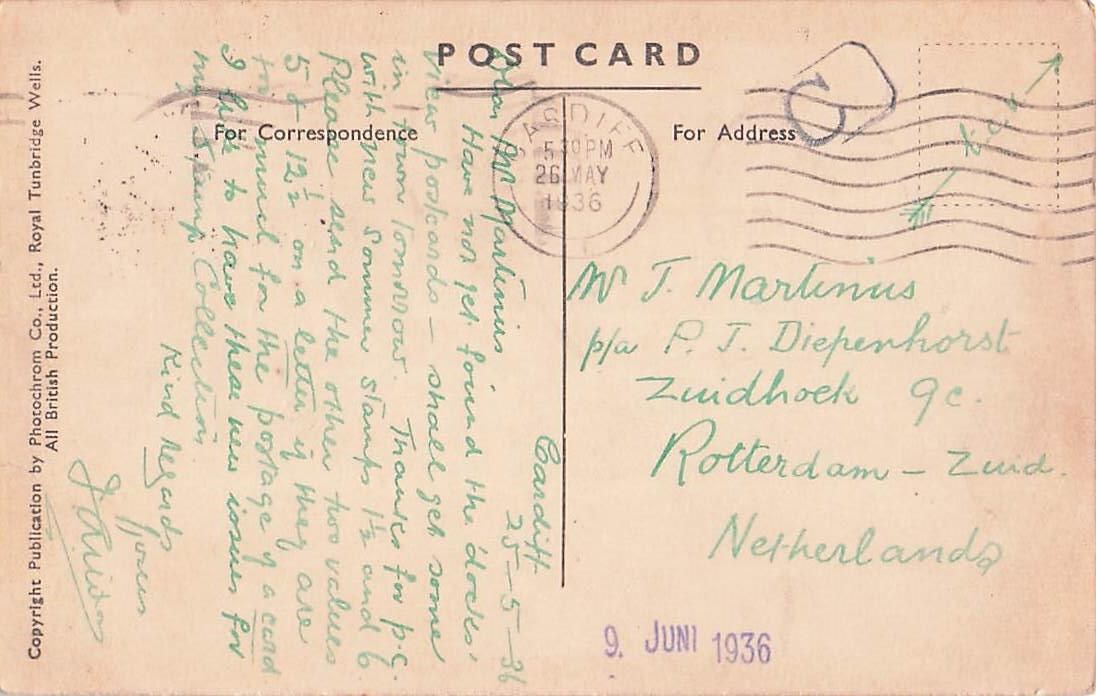 POST CARD
For Correspondence
For Address
CARDIFF
5 30 PM
26 MAY
1936
Cardiff
25-5-36
Dear Mr Martinus
Have not yet found the 'docks'
view postcards – shall get some
in town tomorrow. Thanks for p.c.
with new summer stamps 1½ and 6
Please send the other two values
5 & 12½ on a letter if they are
too much for the postage of a card
I like to have these new issues for
my Stamp Collection
Kind regards
Yours
Mr J. Martinus
p/a P. J. Diepenhorst
Zuidhoek 9c.
Rotterdam – Zuid.
Netherlands
9. JUNI 1936
Copyright Publication by Photochrom Co., Ltd., Royal Tunbridge Wells.
All British Production.